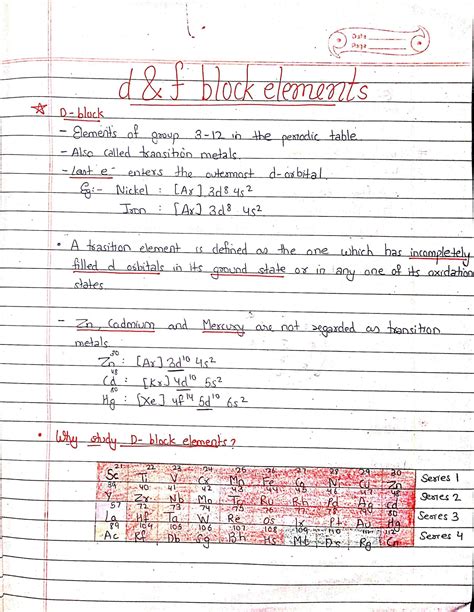 Date
Page
d & f block elements
D-block
- Elements of group 3-12 in the periodic table
- Also called transition metals.
- last e⁻ enters the outermost d-orbital.
Eg:- Nickel : [Ar] 3d8 4s2
Iron : [Ar] 3d8 4s2
• A trasition element is defined as the one which has incompletely
filled d orbitals in its ground state or in any one of its oxidation
states
- Zn, Cadmium and Mercury are not regarded as transition
metals
30
Zn : [Ar] 3d10 4s2
48
Cd : [Kr] 4d10 5s2
80
Hg : [Xe] 4f14 5d10 6s2
• Why study D-block elements?
21 22 23 24 25 26 27 28 29 30
Sc Ti V Cr Mn Fe Co Ni Cu Zn Series 1
39 40 41 42 43 44 45 46 47 48
Y Zr Nb Mo Tc Ru Rh Pd Ag Cd Series 2
57 72 73 74 75 76 77 78 79 80
La Hf Ta W Re Os Ir Pt Au Hg Series 3
89 104 105 106 107 108 109 110 111 112
Ac Rf Db Sg Bh Hs Mt Ds Rg Cn Series 4